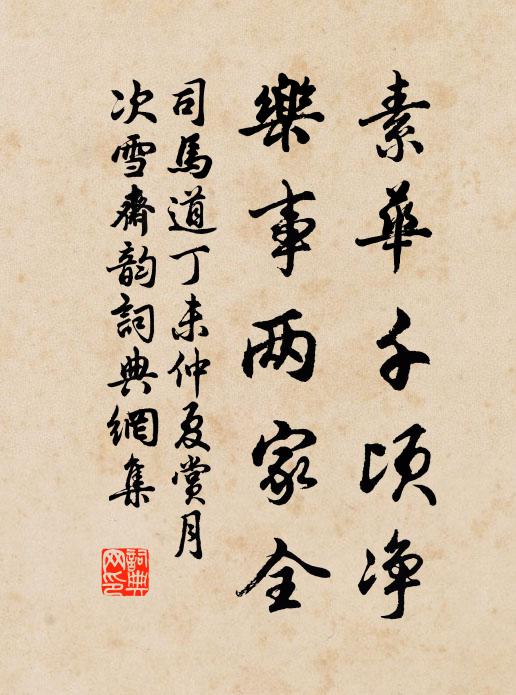 素華千頃净
樂事两家全
司馬道丁未仲夏賞月
次雪齋韵詞典網集
詞典网印